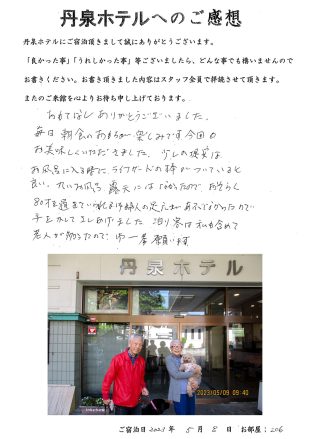 丹泉ホテルへのご感想
丹泉ホテルにご宿泊頂きまして誠にありがとうございます。
「良かった事」「うれしかった事」等ございましたら、どんな事でも構いませんので
お書きください。お書き頂きました内容はスタッフ全員で拝読させて頂きます。
またのご来館を心よりお待ち申し上げております。
おもてなし ありがとうございました。
毎日 朝食のおもちが 楽しみです 今回も
お美味しくいただきました。少しの提案は
お風呂に入る時に、ライフガードの棒がついていると
良い、大いお風呂、露天にはなかったので、おそらく
80才を過ぎていられる御婦人の足元があぶなかったので
手をかしてさしあげました 泊り客は私も含めて
老人が多るので 御一考願います
丹泉ホテル
2023/05/09 09:40
ご宿泊日 2023 年 5 月 8 日 お部屋：206